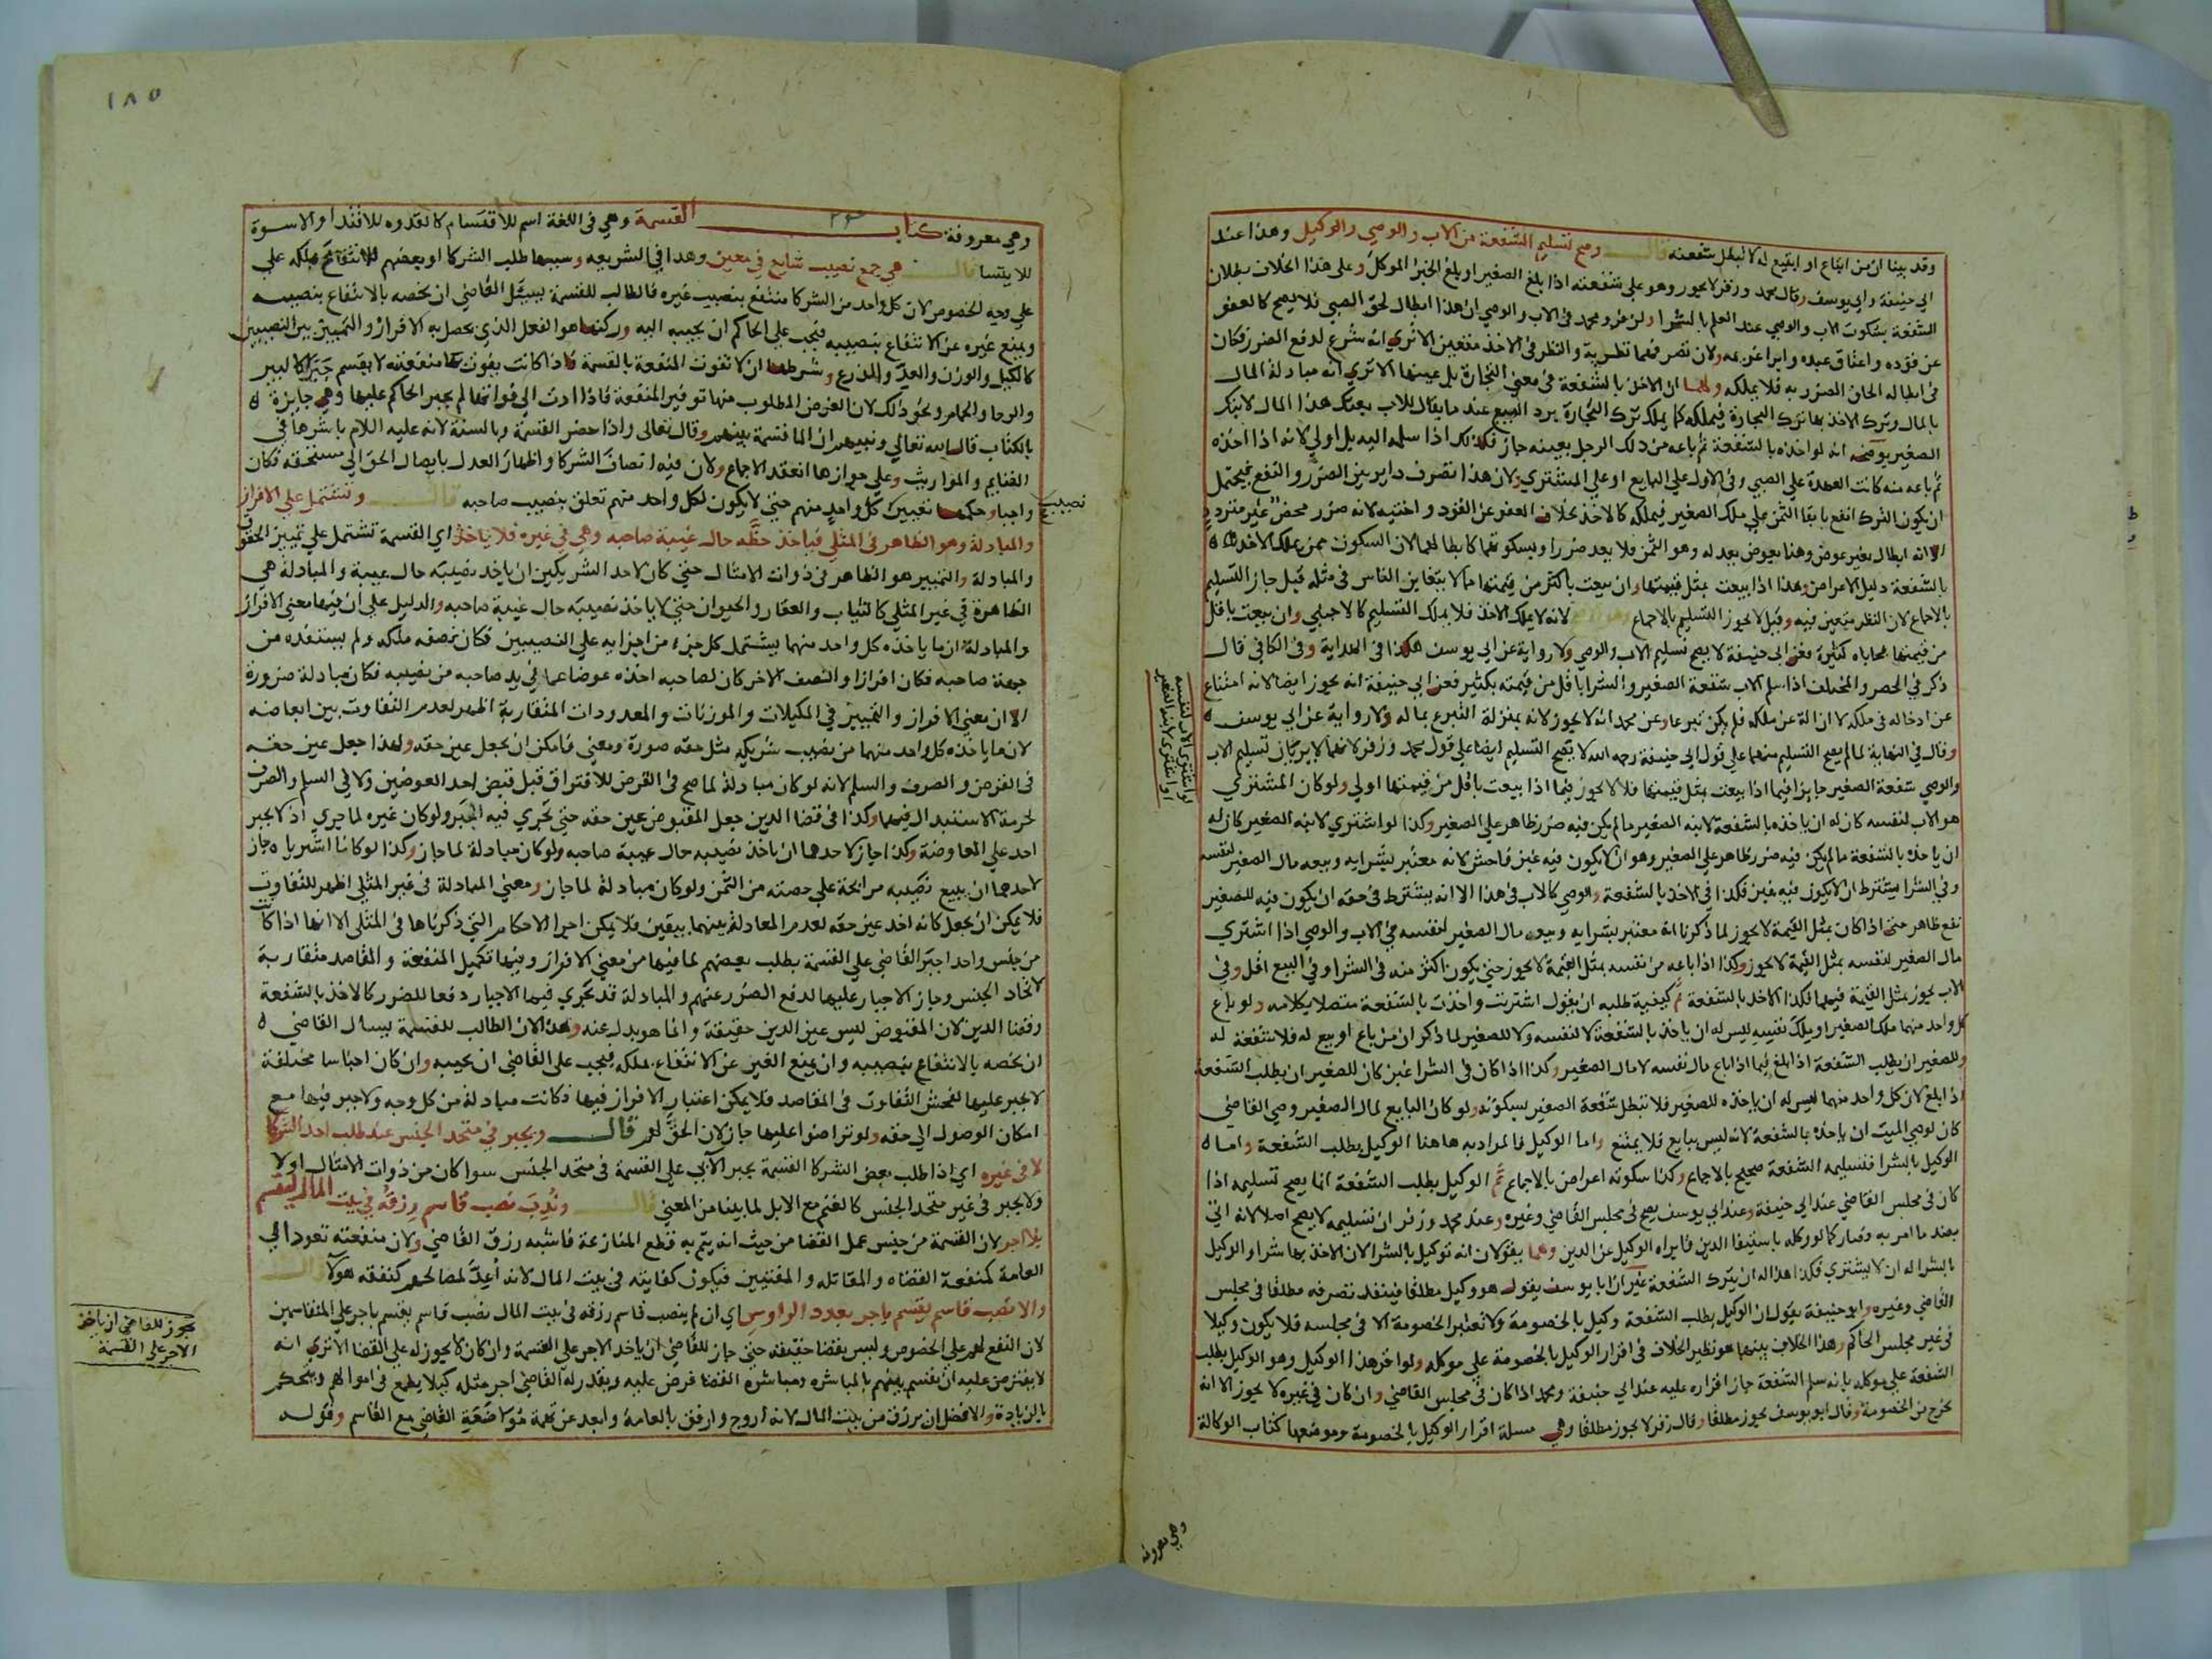 وقد بينا ان من ابتاع او ابتيع له لا تبطل شفعته قال وصح تسليم الشفعة من الاب والوصي والوكيل وهذا عند
ابي حنيفة وابي يوسف وقال محمد وزفر لا يجوز وهو على شفعته اذا بلغ الصغير او بلغ الخبر الموكل وعلى هذا الخلاف بطلان
الشفعة بسكوت الاب والوصي عند العلم بالشرا ولزفر ومحمد في الاب والوصي ان هذا ابطال لحق الصبي فلا يصح كالعفو
عن قوده واعتاق عبده وابرا غريمه ولان تصرفهما نظرية والنظر في الاخذ متعين الا ترى انه شرع لدفع الضرر فكان
في ابطاله الحاق الضرر به فلا يملكه ولهما ان الاخذ بالشفعة في معنى التجارة بل عينها الا ترى انه مبادلة المال
بالمال وترك الاخذ بها ترك التجارة فيملكه كما يملك ترك التجارة برد البيع عند ما يقال للاب بعتك هذا المال لابنك
الصغير يوضحه انه لو اخذه بالشفعة ثم باعه من ذلك الرجل بعينه جاز فكذلك اذا سلمه اليه بل اولى لانه اذا اخذه
ثم باعه منه كانت العهدة على الصبي وفي الاول على البايع او على المشتري ولان هذا تصرف داير بين الضرر والنفع فيحتمل
ان يكون الترك انفع بابقا الثمن على ملك الصغير فيملكه كالاخذ بخلاف العفو عن القود واختيه لانه ضرر محض غير متردد
لانه ابطال بغير عوض وهنا بعوض يعدله وهو الثمن فلا يعد ضررا وسكوتهما كابطالهما لان السكوت ممن يملك الاخذ
بالشفعة دليل الاعراض وهذا اذا بيعت بمثل قيمتها وان بيعت باكثر من قيمتها مالا يتغابن الناس في مثله قيل جاز التسليم
بالاجماع لان النظر متعين فيه وقيل لا يجوز التسليم بالاجماع وهو الاصح لانه لا يملك الاخذ فلا يملك التسليم كالاجنبي وان بيعت باقل
من قيمتها محاباة كثيرة فعن ابي حنيفة لا يصح تسليم الاب والوصي ولا رواية عن ابي يوسف هكذا في الهداية وفي الكافي قال
ذكر في الحصر والمختلف اذا سلم الاب شفعة الصغير والشرا باقل من قيمته بكثير فعن ابي حنيفة انه يجوز ايضا لانه امتناع
عن ادخاله في ملكه لا ازالة عن ملكه فلم يكن تبرعا وعن محمد انه لا يجوز لانه بمنزلة التبرع بماله ولا رواية عن ابي يوسف
وقال في النهاية لما لم يصح التسليم منهما على قول ابي حنيفة رحمه الله لا يصح التسليم ايضا على قول محمد وزفر لانهما لا يريان تسليم الاب
والوصي شفعة الصغير جايزا فيما اذا بيعت بمثل قيمتها فلان لا يجوز فيما اذا بيعت باقل من قيمتها اولى ولو كان المشتري
هو الاب لنفسه كان له ان ياخذه بالشفعة لابنه الصغير ما لم يكن فيه ضرر ظاهر على الصغير وكذا لو اشترى لابنه الصغير كان له
ان ياخذه بالشفعة ما لم يكن فيه ضرر ظاهر على الصغير وهو ان لا يكون فيه غبن فاحش لانه معتبر بشرايه وبيعه مال الصغير لنفسه
وفي الشرا يشترط ان لا يكون فيه غبن فكذا في الاخذ بالشفعة والوصي كالاب في هذا الا انه يشترط في حقه ان يكون فيه للصغير
نفع ظاهر حتى اذا كان بمثل القيمة لا يجوز لما ذكرنا انه معتبر بشرايه وبيعه مال الصغير لنفسه في الاب والوصي اذا اشترى
مال الصغير لنفسه بمثل القيمة لا يجوز وكذا اذا باعه من نفسه بمثل القيمة لا يجوز حتى يكون اكثر منه في الشرا وفي البيع اقل وفي
الاب يجوز بمثل القيمة فيهما فكذا الاخذ بالشفعة ثم كيفية طلبه ان يقول اشتريت واخذت بالشفعة متصلا بكلامه ولو باع
كل واحد منهما ملك الصغير او ملك نفسه ليس له ان ياخذ بالشفعة لا لنفسه ولا للصغير لما ذكر ان من باع او بيع له فلا شفعة له
وللصغير ان يطلب الشفعة اذا بلغ فيما اذا باع مال نفسه لا مال الصغير وكذا اذا كان في الشرا غبن كان للصغير ان يطلب الشفعة
اذا بلغ لان كل واحد منهما ليس له ان ياخذه للصغير فلا تبطل شفعة الصغير بسكوته ولو كان البايع لمال الصغير وصي القاضي
كان لوصي الميت ان ياخذه بالشفعة لانه ليس ببايع فلا يمتنع واما الوكيل فالمراد به هاهنا الوكيل بطلب الشفعة واما
الوكيل بالشرا فتسليمه الشفعة صحيح بالاجماع وكذا سكوته اعراض بالاجماع ثم الوكيل بطلب الشفعة انما يصح تسليمه اذا
كان في مجلس القاضي عند ابي حنيفة وعند ابي يوسف يصح في مجلس القاضي وغيره وعند محمد وزفر ان تسليمه لا يصح اصلا لانه اتى
بضد ما امر به فصار كما لو وكله باستيفا الدين فابراه الوكيل عن الدين وهما يقولان انه توكيل بالشرا لان الاخذ بها شرا والوكيل
بالشرا له ان لا يشتري فكذا هذا له ان يترك الشفعة غير ان ابا يوسف يقول هو وكيل مطلقا فينفذ تصرفه مطلقا في مجلس
القاضي وغيره وابو حنيفة يقول ان الوكيل بطلب الشفعة وكيل بالخصومة ولا تعتبر الخصومة الا في مجلسه فلا يكون وكيلا
في غير مجلس الحاكم وهذا الخلاف بينهما هو نظير الخلاف في اقرار الوكيل بالخصومة على موكله ولو اقر هذا الوكيل وهو الوكيل بطلب
الشفعة على موكله بانه سلم الشفعة جاز اقراره عليه عند ابي حنيفة ومحمد اذا كان في مجلس القاضي وان كان في غيره لا يجوز الا انه
يخرج من الخصومة وقال ابو يوسف يجوز مطلقا وقال زفر لا يجوز مطلقا وهي مسلة اقرار الوكيل بالخصومة وموضعها كتاب الوكالة
وهي معروفة
لو اشترى الاب لنفسه
او اشترى لابنه الصغير
١٨٥
وهي معروفة كتاب القسمة وهي في اللغة اسم للاقتسام كالقدوه للاقتدا والاسوة
للايتسا قال هي جمع نصيب شايع في معين وهذا في الشريعه وسببها طلب الشركا او بعضهم للانتفاع بملكه على
على وجه الخصوص لان كل واحد من الشركا منتفع بنصيب غيره فالطالب للقسمة يسال القاضي ان يخصه بالانتفاع بنصيبه
ويمنع غيره عن الانتفاع بنصيبه فيجب على الحاكم ان يجيبه اليه وركنها هو الفعل الذي يحصل به الافراز والتمييز بين النصيبين
كالكيل والوزن والعد والذرع وشرطها ان لا تفوت المنفعة بالقسمة فاذا كانت يفوت بها منفعته لا يقسم جبرا كالبير
والرحا والحمام ونحو ذلك لان الغرض المطلوب منها توفير المنفعة فاذا ادت الى فواتها لم يجبر الحاكم عليها وهي جايزة
بالكتاب قال الله تعالى ونبيهم ان الما قسمة بينهم وقال تعالى واذا حضر القسمة وبالسنة لانه عليه السلام باشرها في
الغنايم والمواريث وعلى جوازها انعقد الاجماع ولان فيه انصاف الشركا واظهار العدل بايصال الحق الى مستحقه فكان
واجبا وحكمها تعيين كل واحد منهم حتى لا يكون لكل واحد منهم تعلق بنصيب صاحبه قال وتشتمل على الافراز
نصيب
والمبادلة وهو الظاهر في المثلي فياخذ حظه حال غيبة صاحبه وهي في غيره فلا ياخذ اي القسمة تشتمل على تمييز الحقوق
والمبادلة والتمييز هو الظاهر في ذوات الامثال حتى كان لاحد الشريكين ان ياخذ نصيبه حال غيبة والمبادلة هي
الظاهرة في غير المثلي كالثياب والعقار والحيوان حتى لا ياخذ نصيبه حال غيبة صاحبه والدليل على ان فيها معنى الافراز
والمبادلة ان ما ياخذه كل واحد منهما يشتمل كل جزء من اجزايه على النصيبين فكان نصفه ملكه ولم يستفده من
جهة صاحبه فكان افرازا والنصف الاخر كان لصاحبه اخذه عوضا عما في يد صاحبه من نصيبه فكان مبادلة ضرورة
الا ان معنى الافراز والتمييز في المكيلات والموزنات والمعدودات المتقاربة اظهر لعدم التفاوت بين ابعاضه
لان ما ياخذه كل واحد منهما من نصيب شريكه مثل حقه صورة ومعنى فامكن ان يجعل عين حقه ولهذا جعل عين حقه
في القرض والصرف والسلم لانه لو كان مبادلة لما صح في القرض للافتراق قبل قبض احد العوضين ولا في السلم والصرف
لحرمة الاستبدال فيهما وكذا في قضا الدين جعل المقبوض عين حقه حتى يجري فيه الجبر ولو كان غيره لما جرى اذ لا يجبر
احد على المعاوضة وكذا جاز لاحدهما ان ياخذ نصيبه حال غيبة صاحبه ولو كان مبادلة لما جاز وكذا لو كانا اشترياه جاز
لاحدهما ان يبيع نصيبه مرابحة على حصته من الثمن ولو كان مبادلة لما جاز ومعنى المبادلة في غير المثلي اظهر للتفاوت
فلا يمكن ان يجعل كانه اخذ عين حقه لعدم المعادلة بينهما بيقين فلا يمكن اجرا الاحكام التي ذكرناها في المثلى الا انها اذا كانت
من جنس واحد اجبر القاضي على القسمة بطلب بعضهم لما فيها من معنى الافراز وفيها تكميل المنفعة والمقاصد متقاربة
لاتحاد الجنس وجاز الاجبار عليها لدفع الضرر عنهم والمبادلة قد تجري فيها الاجبار دفعا للضرر كالاخذ بالشفعة
وقضا الدين لان المقبوض ليس عين الدين حقيقة وانما هو بدل عنه وهذا لان الطالب للقسمة يسال القاضي
ان يخصه بالانتفاع بنصيبه وان يمنع الغير عن الانتفاع بملكه فيجب على القاضي ان يجيبه وان كان اجناسا مختلفة
لا يجبر عليها لفحش التفاوت في المقاصد فلا يمكن اعتبار الافراز فيها فكانت مبادلة من كل وجه ولا جبر فيها مع
امكان الوصول الى حقه ولو تراضوا عليها جاز لان الحق لهم قال ويجبر في متحد الجنس عند طلب احد الشركا
لا في غيره اي اذا طلب بعض الشركا القسمة يجبر الآبي على القسمة في متحد الجنس سوا كان من ذوات الامثال او لا
ولا يجبر في غير متحد الجنس كالغنم مع الابل لما بينا من المعنى قال وندب نصب قاسم رزقه في بيت المال ليقسم
بلا اجر لان القسمة من جنس عمل القضا من حيث انه يتم به قطع المنازعة فاشبه رزق القاضي ولان منفعته تعود الى
العامة كمنفعة القضاة والمقاتله والمفتيين فيكون كفايته في بيت المال لانه أعد لمصالحهم كنفقه هولا قال
والا نصب قاسم يقسم باجر بعدد الرؤس اي ان لم ينصب قاسم رزقه في بيت المال نصب قاسم يقسم باجر على المتقاسمين
لان النفع لهم على الخصوص وليس بقضا حقيقه حتى جاز للقاضي ان ياخذ الاجر على القسمة وان كان لا يجوز له على القضا الا ترى انه
لا يفترض عليه ان يقسم بينهم بالمباشره ومباشره القضا فرض عليه ويقدر له القاضي اجر مثله كيلا يطمع في اموالهم ويتحكم
بالزيادة والافضل ان يرزق من بيت المال لانه اروج وارفق بالعامة وابعد عن تهمة مواضعة القاضي مع القاسم وقوله
يجوز للقاضي ان ياخذ
الاجر على القسمة